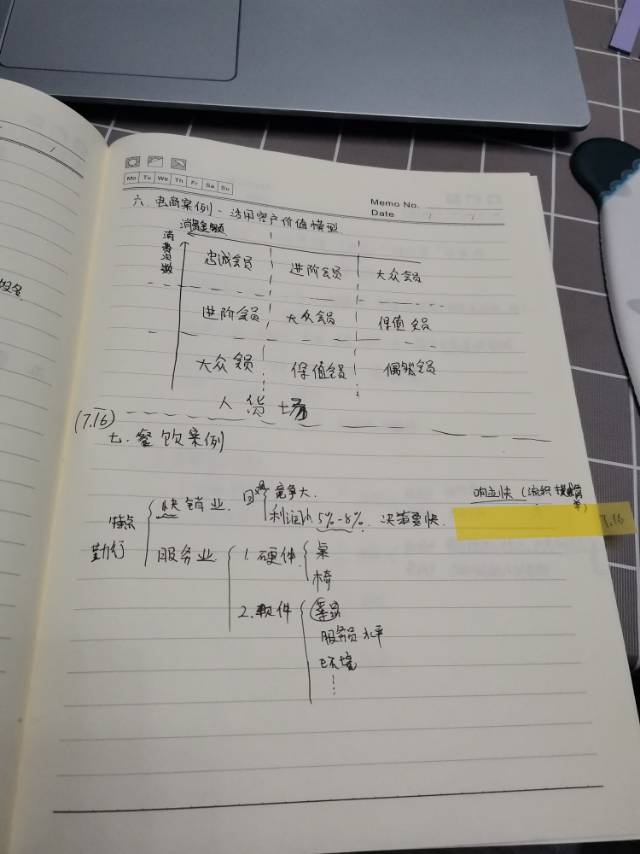 Mo Tu We Th Fr Sa Su
Memo No.
Date / /
六、电商案例、活用客户价值模型
消费金额
消费次数
忠诚会员 进阶会员 大众会员
进阶会员 大众会员 保值会员
大众会员 保值会员 偶然会员
人 货 场
(7.16)
七、餐饮案例
特点
快销业
竞争大.
利润小 5%-8%. 决策要快.
响应快
7.16
服务业
1. 硬件
桌
椅
2. 軟件
服务员水平
环境